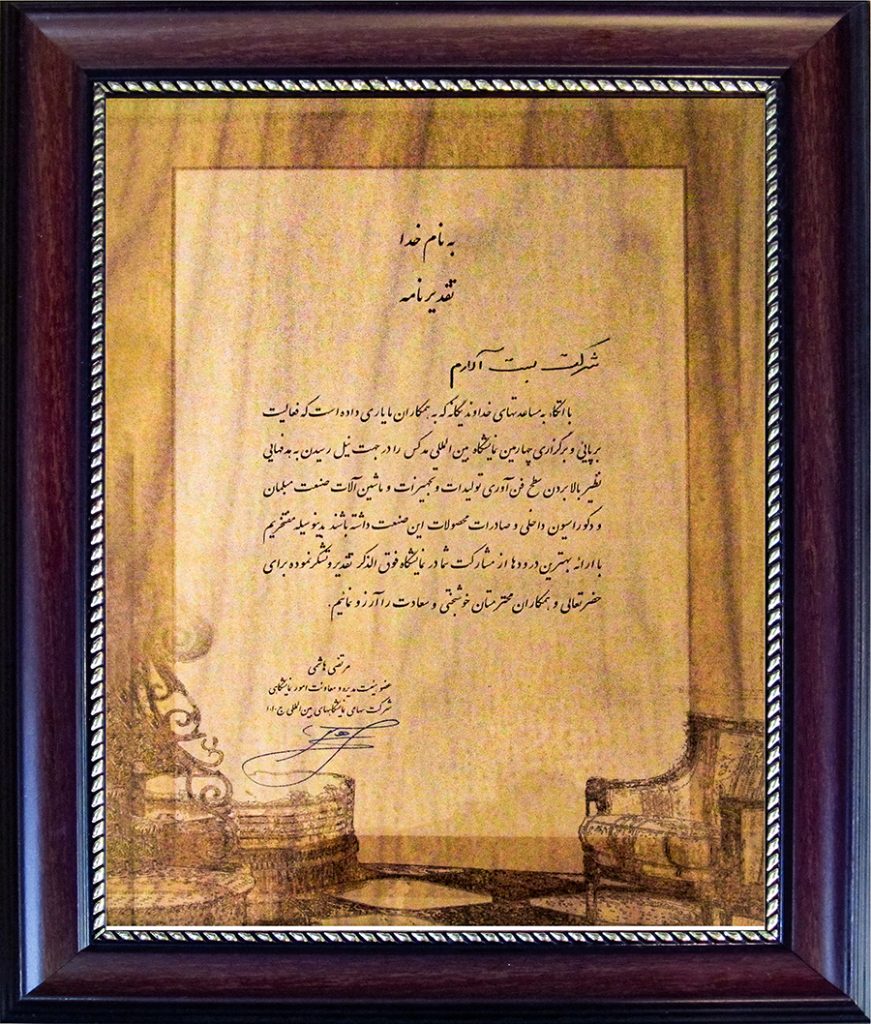 به نام خدا
تقدیرنامه
شرکت بست آلارم
با اتکاء به مساعدتهای خداوند یگانه که به همکاران ما یاری داده است که فعالیت
برپائی و برگزاری چهارمین نمایشگاه بین المللی مدکس را در جهت نیل رسیدن به هدفهایی
نظیر بالا بردن سطح فن آوری تولیدات و تجهیزات و ماشین آلات صنعت مبلمان
و دکوراسیون داخلی و صادرات محصولات این صنعت داشته باشند بدینوسیله مفتخریم
با ارائه بهترین درودها از مشارکت شما در نمایشگاه فوق الذکر تقدیر و تشکر نموده برای
حضرتعالی و همکاران محترمتان خوشبختی و سعادت را آرزو نمائیم.
مرتضی هاشمی
عضو هیئت مدیره و معاونت امور نمایشگاهی
شرکت سهامی نمایشگاههای بین المللی ج.ا.ا